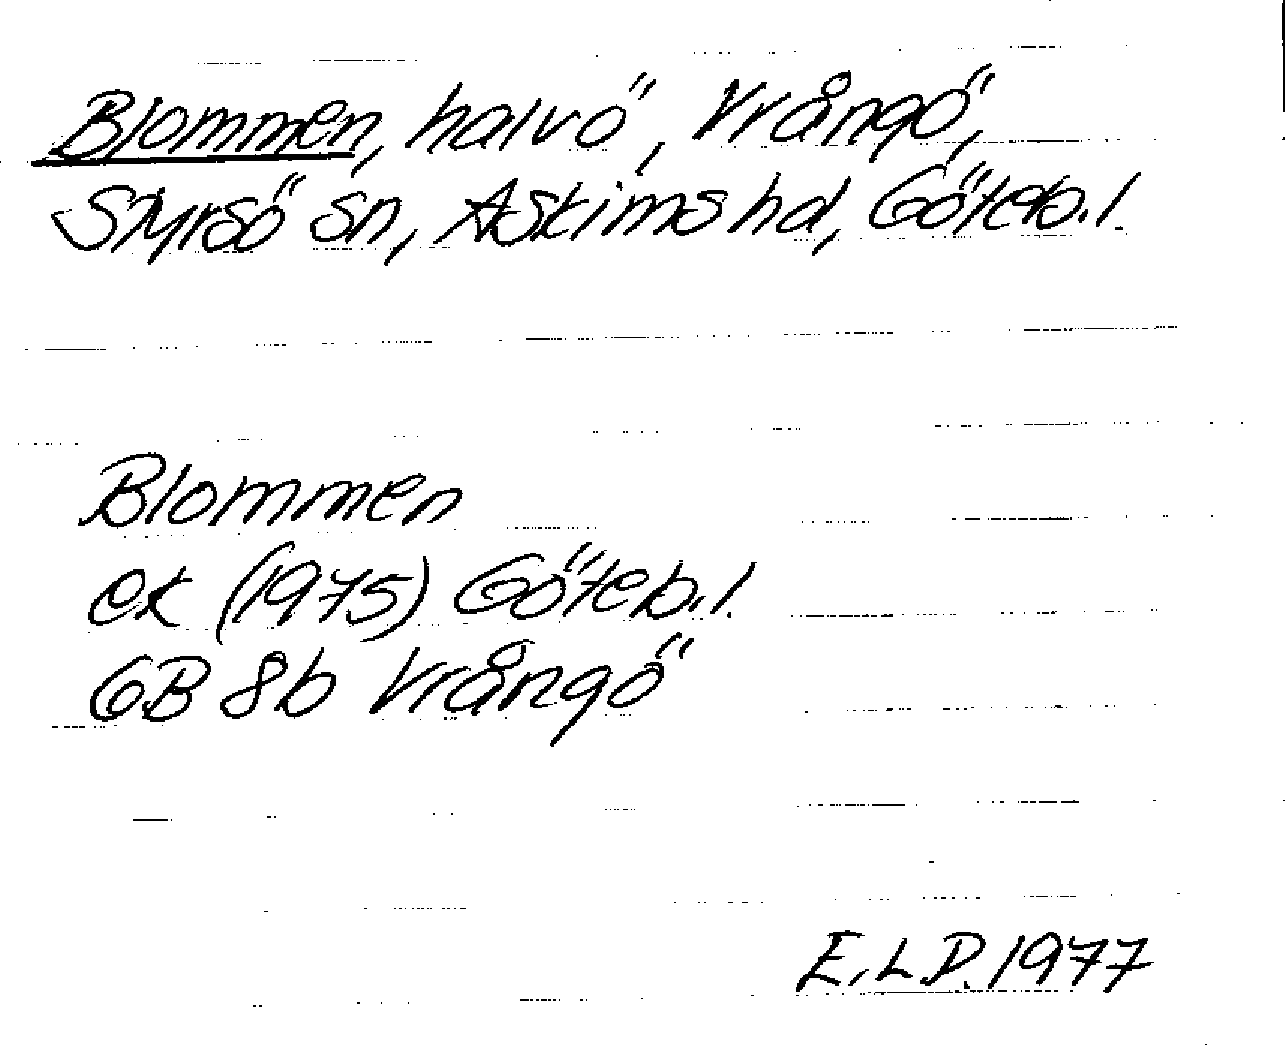 Blommen, halvö, Vrångö,
Styrsö sn, Askims hd, Göteb. l.
Blommen
ek (1975) Göteb. l.
GB 8b Vrångö
E.L.D. 1977